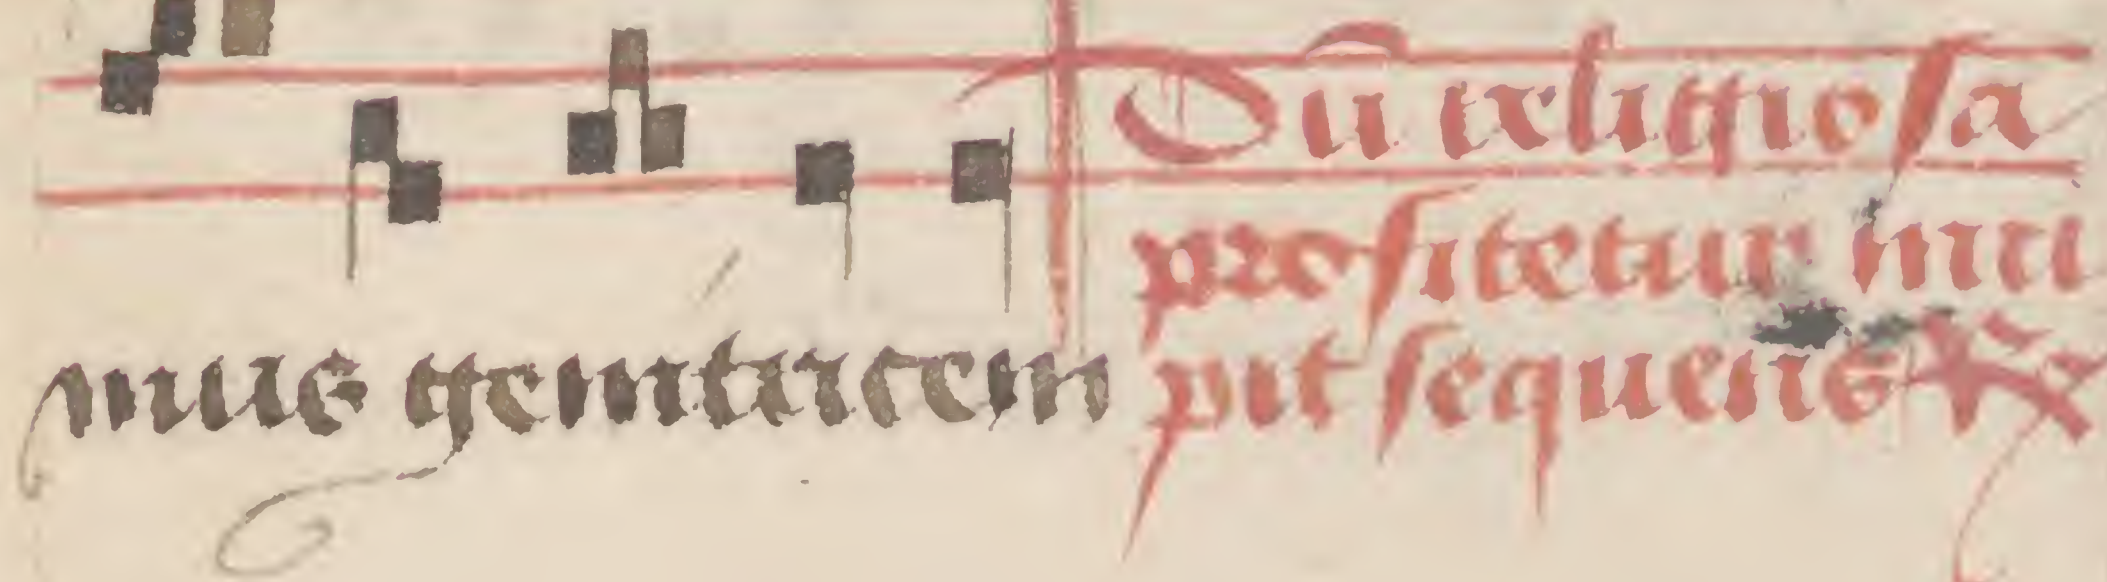 mus genitricem
Dū religiosa
profitetur inci
pit sequens ℟